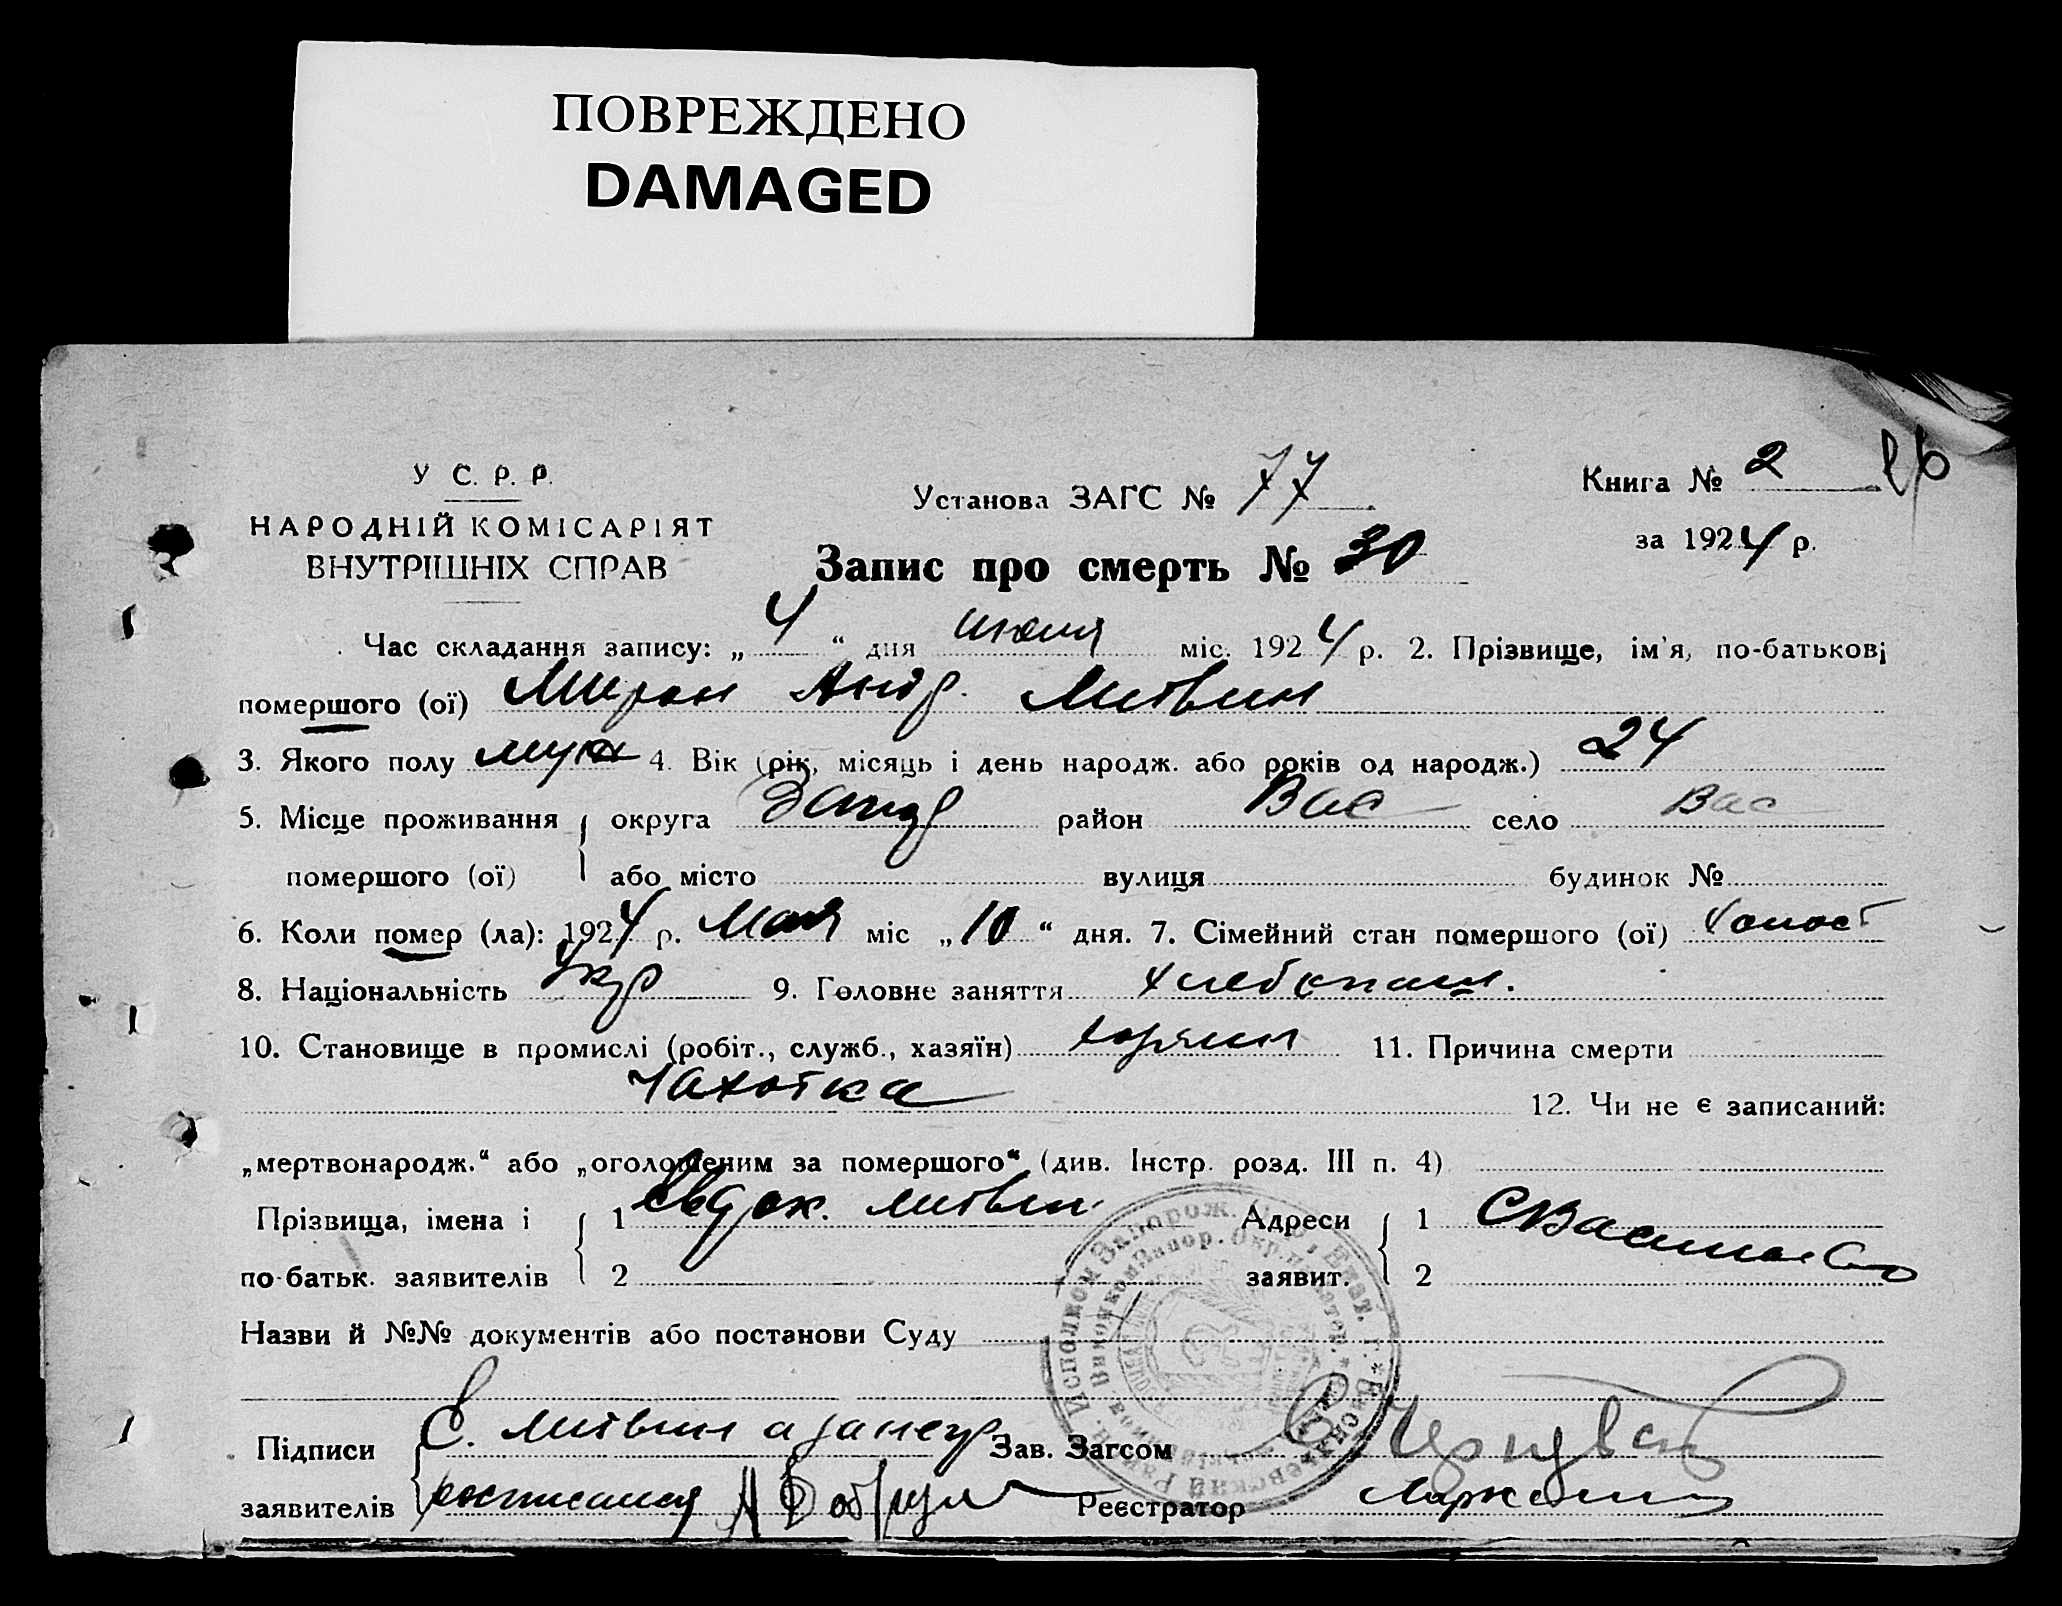 ПОВРЕЖДЕНО
DAMAGED
У С. Р. Р.
НАРОДНІЙ КОМІСАРІЯТ
ВНУТРІШНІХ СПРАВ
Установа ЗАГС № 77
Книга № 2
за 1924 р.
Запис про смерть № 30
Час складання запису: „ 4 “ дня июня міс. 1924 р. 2. Прізвище, ім'я, по-батькові
помершого (ої) Мирон Андр. Литвин
3. Якого полу муж 4. Вік (рік, місяць і день народж. або років од народж.) 24
5. Місце проживання округа Запор район Вас село Вас
помершого (ої) або місто вулиця будинок №
6. Коли помер (ла): 1924 р. Мая міс „10“ дня. 7. Сімейний стан помершого (ої) холост
8. Національність Укр 9. Головне заняття хлебопаш.
10. Становище в промислі (робіт., служб., хазяїн) 11. Причина смерти
Чахотка 12. Чи не є записаний:
„мертвонародж.“ або „оголошеним за помершого“ (див. Інстр. розд. III п. 4)
Прізвища, імена і 1 Евдок. Литвин Адреси 1
по-батьк. заявителів 2 заявит. 2
Назви й №№ документів або постанови Суду
Підписи Е. Литвин а за негр Зав. Загсом
заявителів росписался Реєстратор